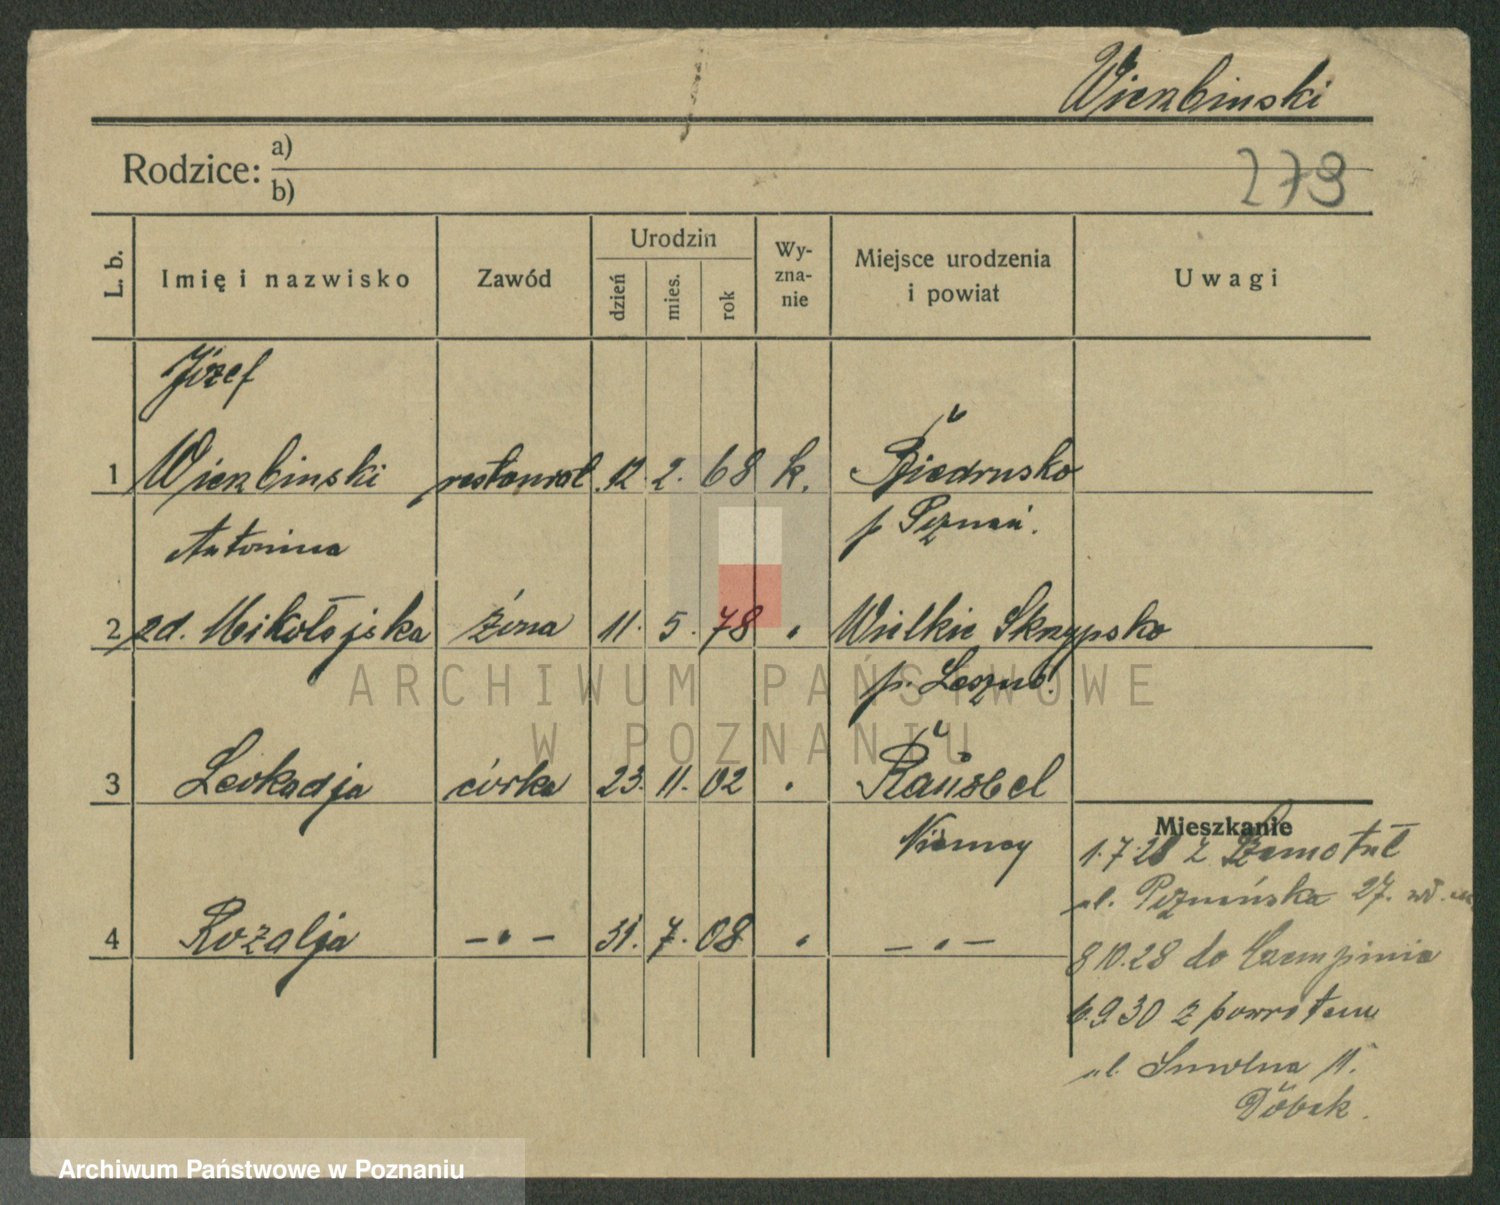 Wierzbinski
Rodzice: a)
b)
273
L. b.
Imię i nazwisko
Zawód
Urodzin
dzień
mies.
rok
Wy-
zna-
nie
Miejsce urodzenia
i powiat
Uwagi
Józef
1 Wierzbinski restaurat. 12. 2. 68 k. Biedrusko
p Poznań.
Antonina
2 zd. Mikołajska żona 11. 5. 78 " Wielkie Skrzypsko
p. Leszno.
3 Leokadja córka 23. 11. 02 " Rauxel
Niemcy
4 Rozalja — " — 31. 7. 08 " — " —
Mieszkanie
1.7.28 z Szamotuł
ul. Poznańska 27.
8 10.28 do Czempinia
6.9.30 z powrotem
ul. Smolna 11.
ARCHIWUM PAŃSTWOWE
W POZNANIU
Archiwum Państwowe w Poznaniu